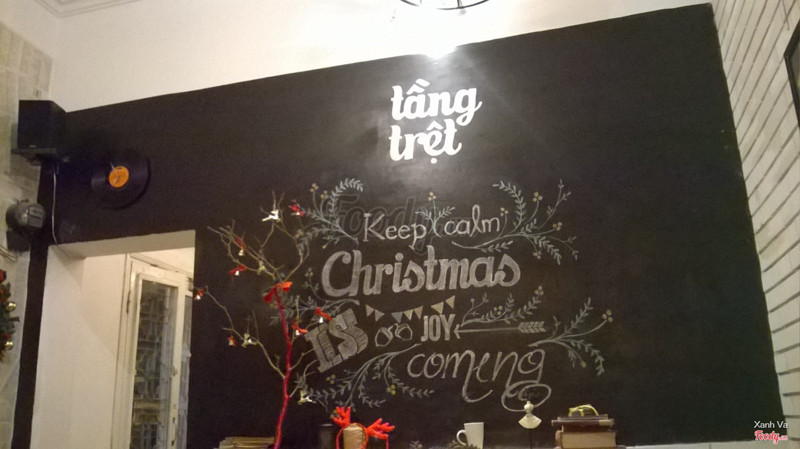 tầng
trệt
Keep calm
Christmas
IS JOY
coming
Foody
Xanh Va
Foody.vn